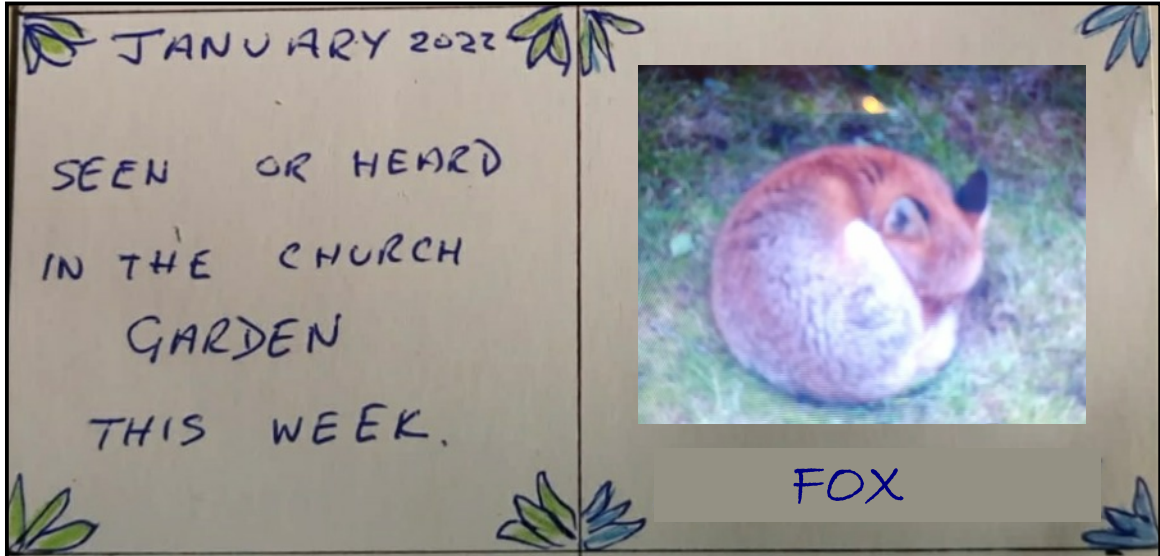 JANUARY 2022
SEEN OR HEARD
IN THE CHURCH
GARDEN
THIS WEEK.
FOX